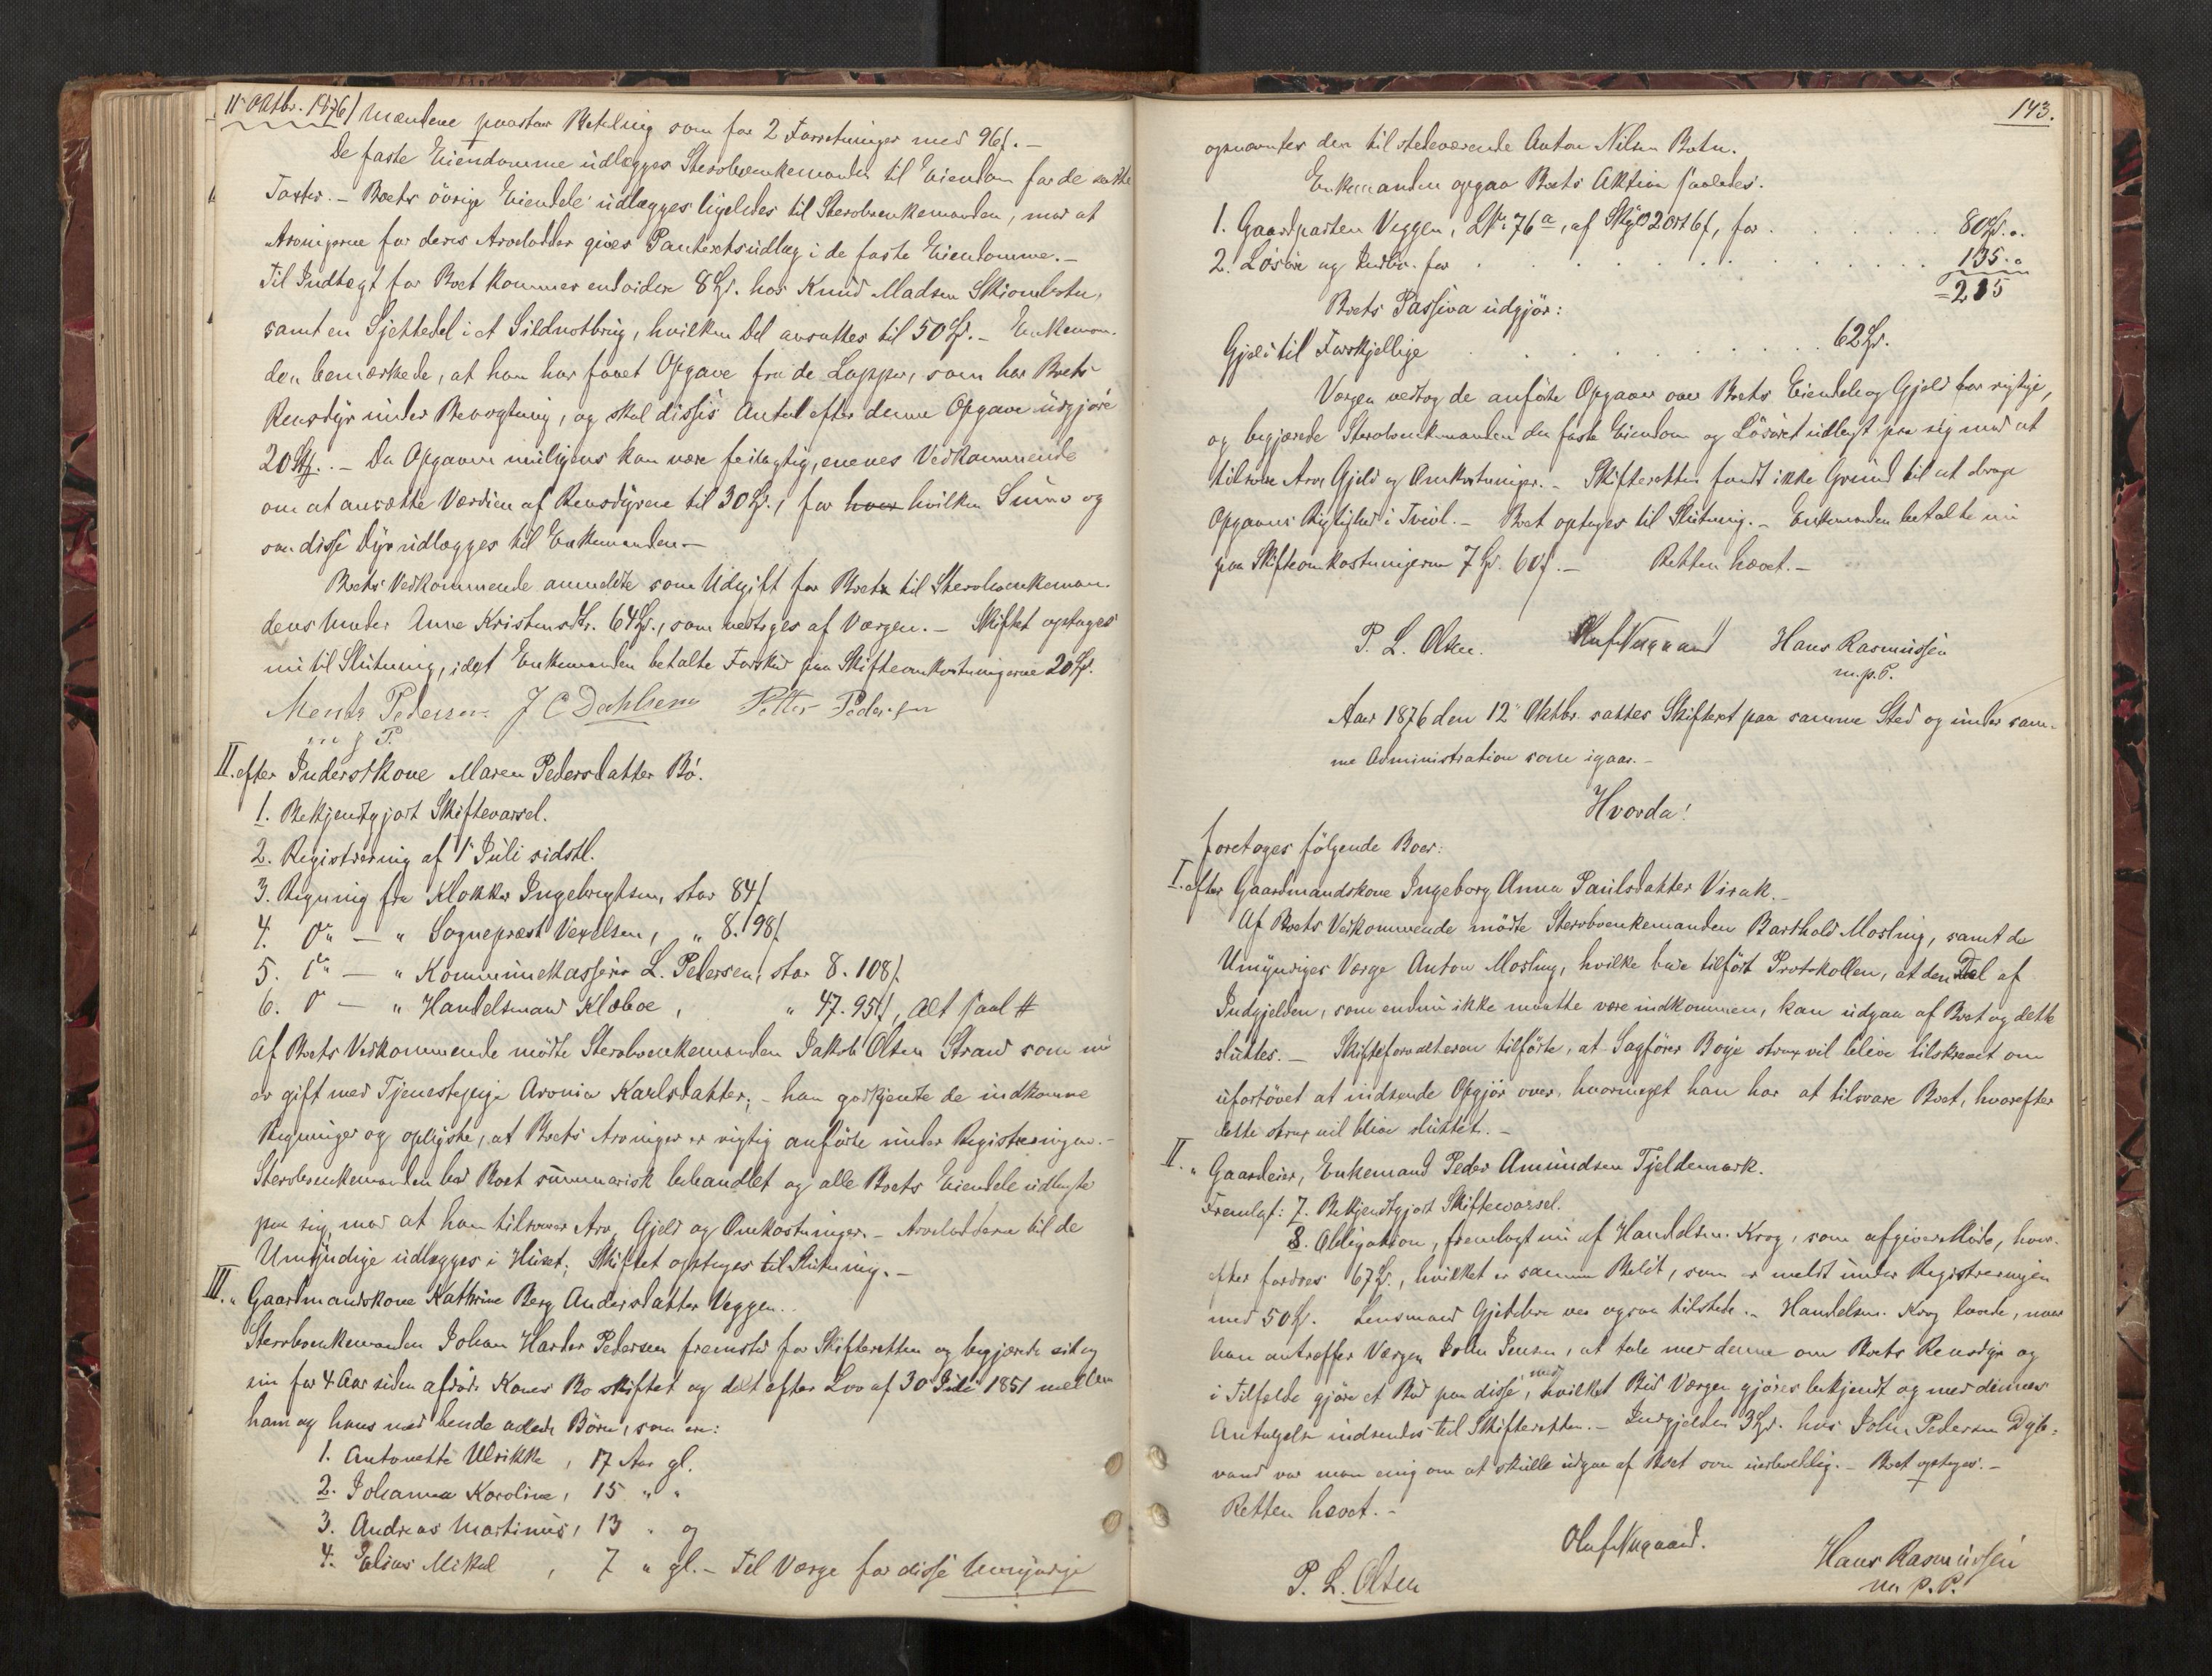 11' Oktbr. 1876/ Mændene paastaar Betaling som for 2 Forretninger med 96f. —
De faste Eiendomme udlægges Stervboenkemanden til Eiendom for de satte
Taxter. — Boets övrige Eiendele udlægges ligeledes til Stervboenkemanden, mod at
Arvingerne for deres Arvelodder gives Panteretsudlæg i de faste Eiendomme. —
Til Indtægt for Boet kommer endvidere 8 Spd. hos Knud Madsen
samt en Sjettedel i et Sildnotbrug, hvilken Del ansattes til 50 Spd. — Enkeman-
den bemærkede, at han har faaet Opgave fra de Lapper, som har Boets
Rensdyr under Bevogtning, og skal disses Antal efter denne Opgave udgjöre
20 Stk. — Da Opgaven muligens kan være feilagtig, enedes Vedkommende
om at ansætte Værdien af Rensdyrene til 30 Spd., for hver hvilken Summa og
saa disse Dyr udlægges til Enkemanden —
Boets Vedkommende anmeldte som Udgift for Boet til Stervboenkeman-
dens Moder Anne Kristensdtr. 64 Spd., som vedtoges af Værgen. — Skiftet optages
nu til Slutning, idet Enkemanden betalte Forskud paa Skifteomkostningerne 20 Spd.
Mentz Pedersen J C Dahlsen Petter Pedersen
m f P.
II. efter Inderstkone Maren Pedersdatter Bö.
1. Bekjendtgjort Skiftevarsel.
2. Registrering af 1' Juli sidstl.
3. Regning fra Klokker Ingebrigtsen, stor 84f
4. Do — " Sogneprest Vexelsen, " 8. 98f.
5. Do — " Kommunekasserer L. Pedersen, stor 8. 108f.
6. Do — " Handelsmand Klæboe, " 47. 95f, Alt saal. #
Af Boets Vedkommende mödte Stervboenkemanden Jakob Olsen Strand som nu
er gift med Tjenestepige Aronia Karlsdatter; — han godkjendte de indkomne
Regninger og oplyste, at Boets Arvinger er rigtig anförte under Registreringen. —
Stervboenkemanden bad Boet summarisk behandlet og alle Boets Eiendele udlagte
paa sig mod at han tilsvarer Arv, Gjeld og Omkostninger. — Arvelodderne til de
Umyndige udlægges i Huset; Skiftet optages til Slutning. —
III. " Gaardmandskone Kathrine Berg Andersdatter Veggen.
Stervboenkemanden Johan Harder Pedersen fremstod for Skifteretten og begjærede sit og
sin for 4 Aar siden afdöde Kones Bo skiftet og delt efter Lov af 30' Juli 1851 mellem
ham og hans med hende avlede Börn, som ere:
1. Antonette Ulrikke, 17 Aar gl.
2. Johanna Karoline, 15 " "
3. Andreas Martinus, 13 " og
4. Elias Mikal, 7 " gl. — Til Værge for disse Umyndige
143.
opnævntes den tilstedeværende Anton Nilsen Botn.
Enkemanden opgav Boets Aktiva saaledes:
1. Gaardparten Veggen, LNr. 76a, af Skyld 2 ort 6f, for . . . . . . 80 Spd. ".
2. Lösöre og Indbo. for . . . . . . . . . . . 135. "
= 215
Boets Passiva udgjör:
Gjeld til Forskjellige . . . . . . . . . 62 Spd.
Værgen vedtog de anförte Opgaver over Boets Eiendele og Gjeld for rigtige,
og begjærede Stervboenkemanden den faste Eiendom og Lösöret udlagt paa sig mod at
tilsvare Arv, Gjeld og Omkostninger. — Skifteretten fandt ikke Grund til at drage
Opgavens Rigtighed i Tvivl. — Boet optages til Slutning. — Enkemanden betalte nu
paa Skifteomkostningerne 7 Spd. 60f. — Retten hævet. —
P. L. Olsen. Oluf Nygaard Hans Rasmussen
m. p. P.
Aar 1876 den 12' Oktbr. sattes Skifteret paa samme Sted og under sam-
me Administration som igaar. —
Hvorda!
foretoges fölgende Boer:
I. efter Gaardmandskone Ingeborg Anna Paulsdatter Virak. —
Af Boets Vedkommende mödte Stervboenkemanden Barthold Mosling, samt de
Umyndiges Værge Anton Mosling, hvilke bade tilfört Protokollen, at den Del af
Indgjelden, som endnu ikke maatte være indkommen, kan udgaa af Boet og dette
sluttes. — Skifteforvalteren tilförte, at Sagförer Boye strax vil blive tilskrevet om
ufortövet at indsende Opgjör over, hvormeget han har at tilsvare Boet, hvorefter
dette strax vil blive sluttet. —
II. " Gaardeier, Enkemand Peder Amundsen Tjeldemark.
Fremlagt: 7. Bekjendtgjort Skiftevarsel.
8. Obligation, fremlagt nu af Handelsm. Krog, som afgiver Möde, hvor-
efter fordres 67 Spd., hvilket er samme Belöb, som er meldt under Registreringen
med 50 Spd. Lensmand var ogsaa tilstede. — Handelsm. Krog lovede, naar
han antræffer Værgen John Jensen, at tale med denne om Boets Rensdyr og
i Tilfælde gjöre et Bud paa disse, hvilket Bud Værgen gjöres bekjendt og med dennes
Antagelse indsendes til Skifteretten. — Indgjelden 3 Spd. hos John Pedersen Dybe-
vand var man enig om at skulle udgaa af Boet som uerholdelig. — Boet optages. —
Retten hævet. —
P. L. Olsen Oluf Nygaard. Hans Rasmussen
m. p. P.